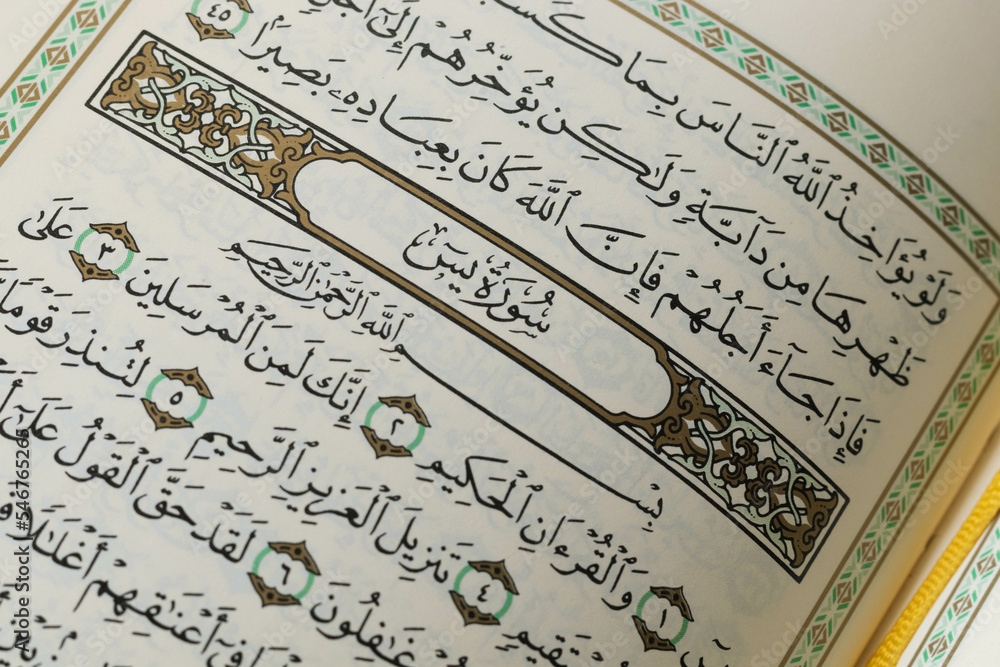 وَلَوْ يُؤَاخِذُ ٱللَّهُ ٱلنَّاسَ بِمَا كَسَبُ
ظَهْرِهَا مِن دَآبَّةٍ وَلَٰكِن يُؤَخِّرُهُمْ إِلَىٰٓ أَجَلٍ
فَإِذَا جَآءَ أَجَلُهُمْ فَإِنَّ ٱللَّهَ كَانَ بِعِبَادِهِۦ بَصِيرًۢا ٤٥
سُورَةُ يسٓ
بِسْمِ ٱللَّهِ ٱلرَّحْمَٰنِ ٱلرَّحِيمِ
١ وَٱلْقُرْءَانِ ٱلْحَكِيمِ ٢ إِنَّكَ لَمِنَ ٱلْمُرْسَلِينَ ٣ عَلَىٰ
تَقِيمٍ ٤ تَنزِيلَ ٱلْعَزِيزِ ٱلرَّحِيمِ ٥ لِتُنذِرَ قَوْمًا مَّا
غَٰفِلُونَ ٦ لَقَدْ حَقَّ ٱلْقَوْلُ عَلَىٰٓ
فِىٓ أَعْنَٰقِهِمْ أَغْلَٰلًا
Adobe Stock | #546765265